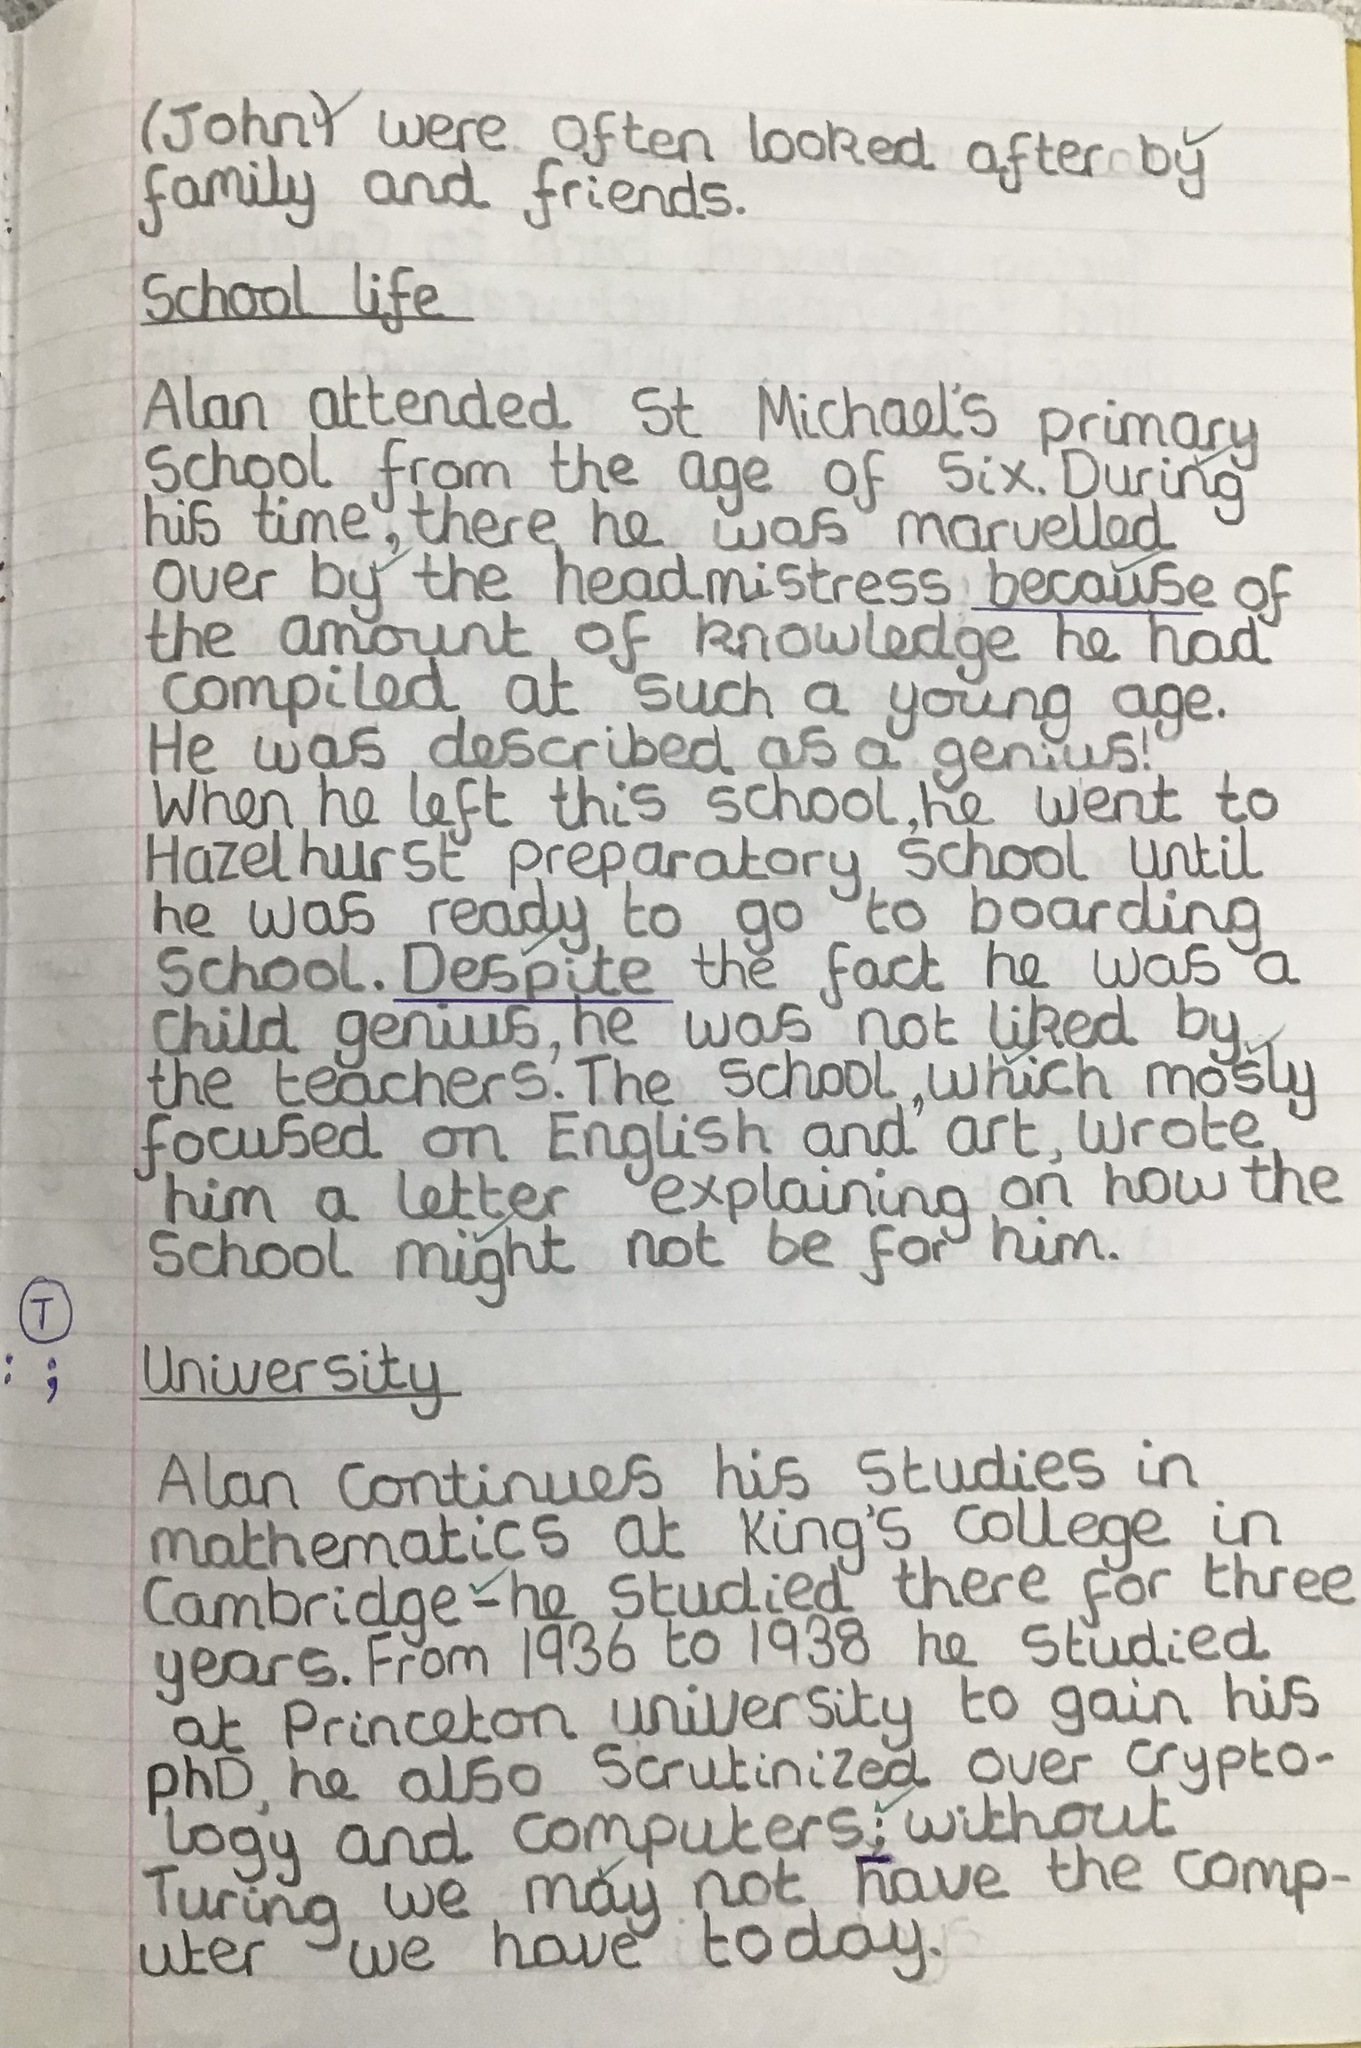 (John) were often looked after by
family and friends.
School life
Alan attended St Michael's primary
School from the age of six. During
his time, there he was marvelled
over by the headmistress because of
the amount of knowledge he had
compiled at such a young age.
He was described as a genius!
When he left this school, he went to
Hazelhurst preparatory school until
he was ready to go to boarding
School. Despite the fact he was a
child genius, he was not liked by
the teachers. The school, which mosly
focused on English and art, wrote
him a letter explaining on how the
School might not be for him.
T
: ;
University
Alan continues his studies in
mathematics at King's college in
Cambridge - he studied there for three
years. From 1936 to 1938 he studied
at Princeton university to gain his
phD, he also scrutinized over crypto-
logy and computers; without
Turing we may not have the comp-
uter we have today.